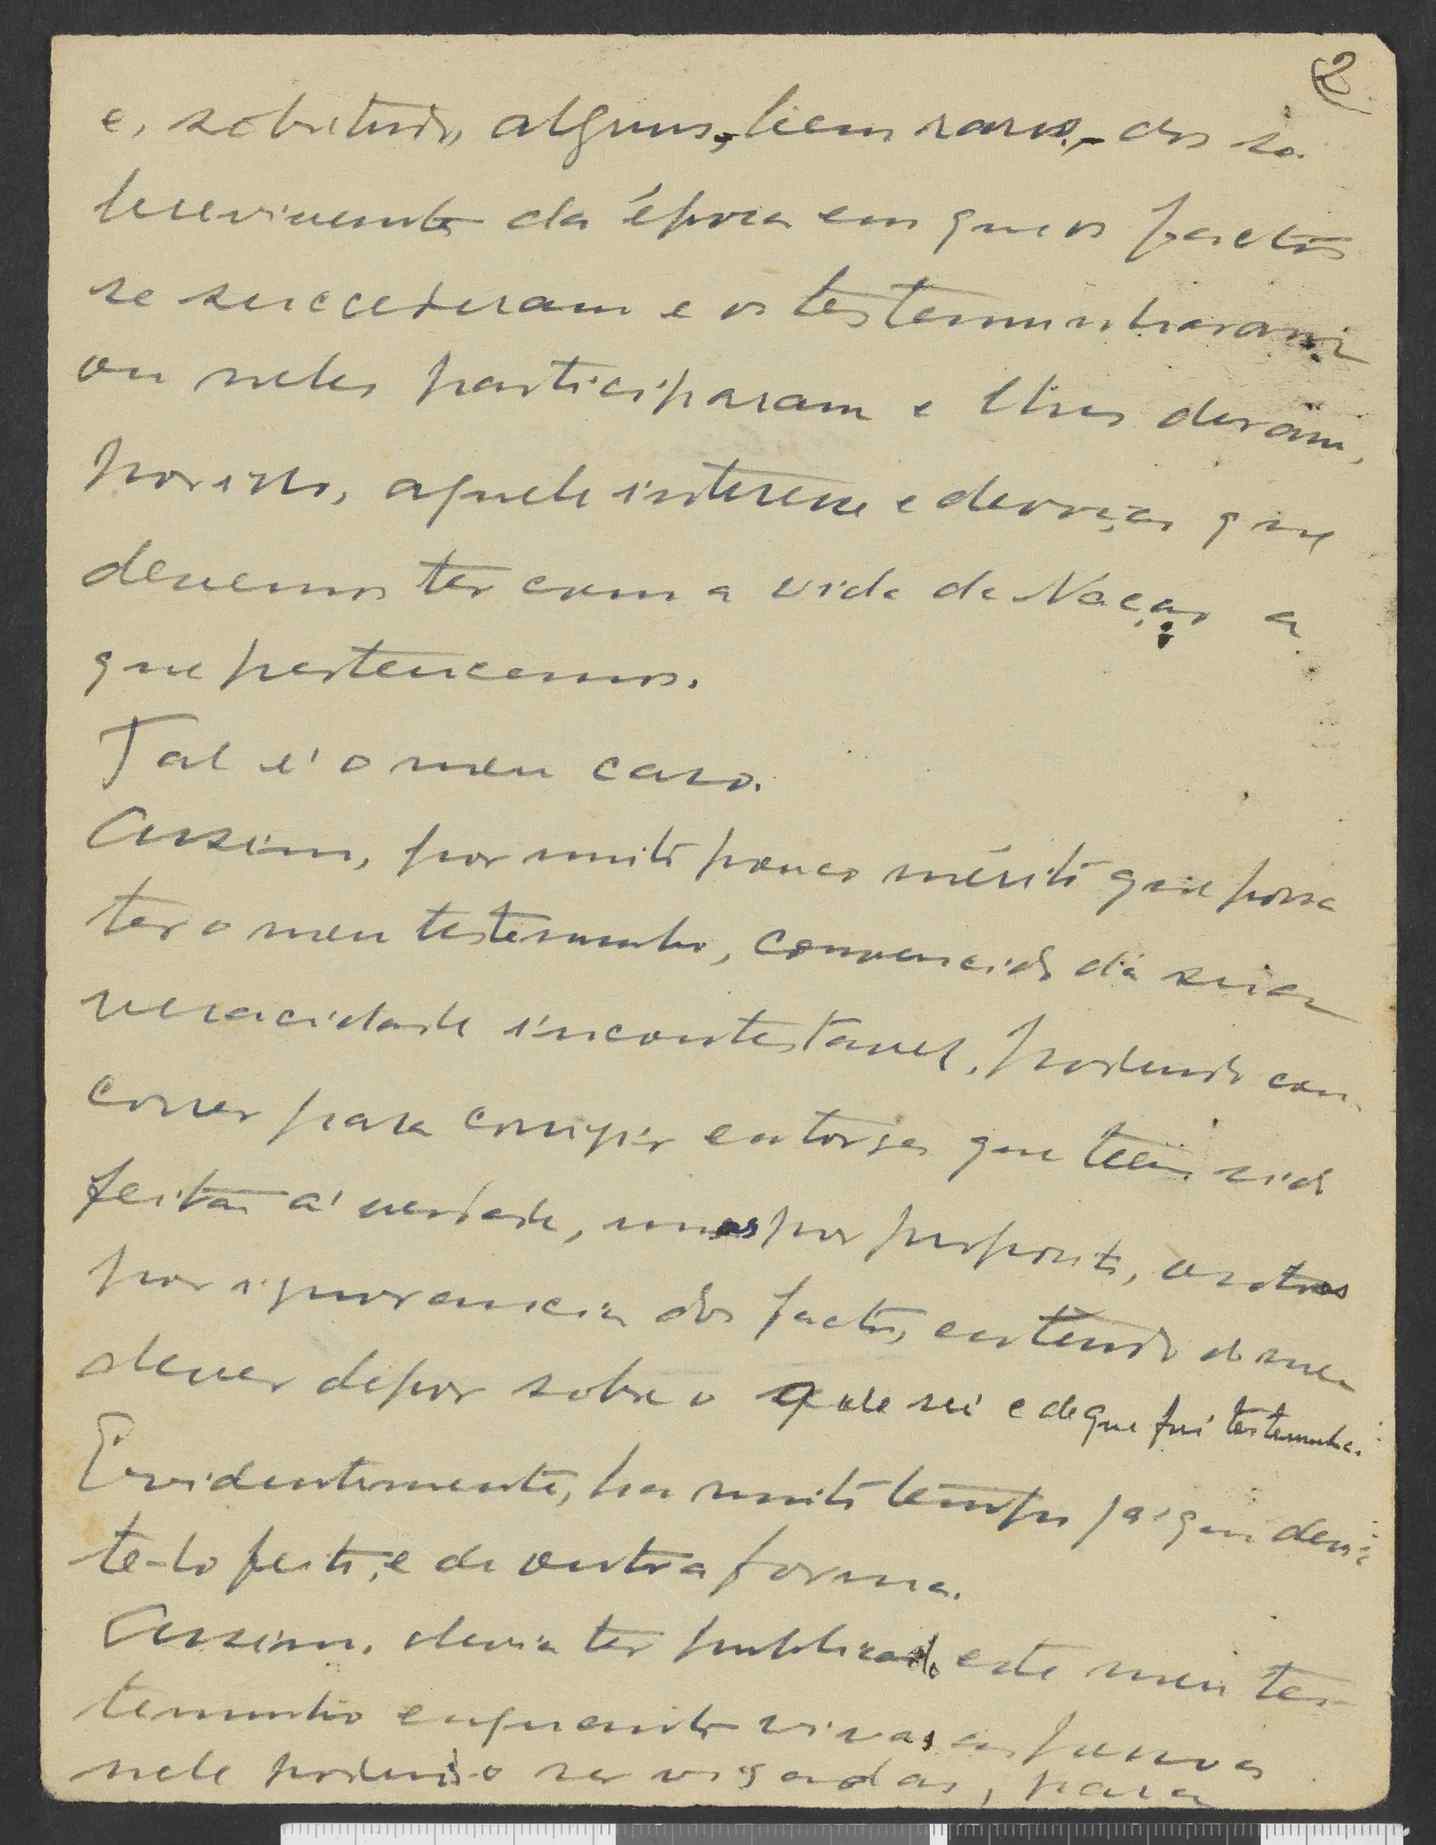 2
e, sobretudo, alguns, - bem raros, - dos so-
brevivente da época em que os factos
se succederam e os testemunharam
ou neles participaram e lhes deram,
por isso, aquele interesse e devoção que
devemos ter com a vida da Nação a
que pertencemos.
Tal é o meu caso.
Assim, por muito pouco mérito que possa
ter o meu testemunho, convencido da sua
veracidade incontestavel, podendo con-
correr para corrigir entorses que teem sido
feitas á verdade, umas por proposito, outras
por ignorancia dos factos, entendo do meu
dever depor sobre o que sei e de que fui testemunha.
Evidentemente, ha muito tempo já que devia
te-lo feito, e de outra forma.
Assim, devia ter publicado este meu tes-
temunho enquanto vivas as pessoas
nele podendo ser visadas, para